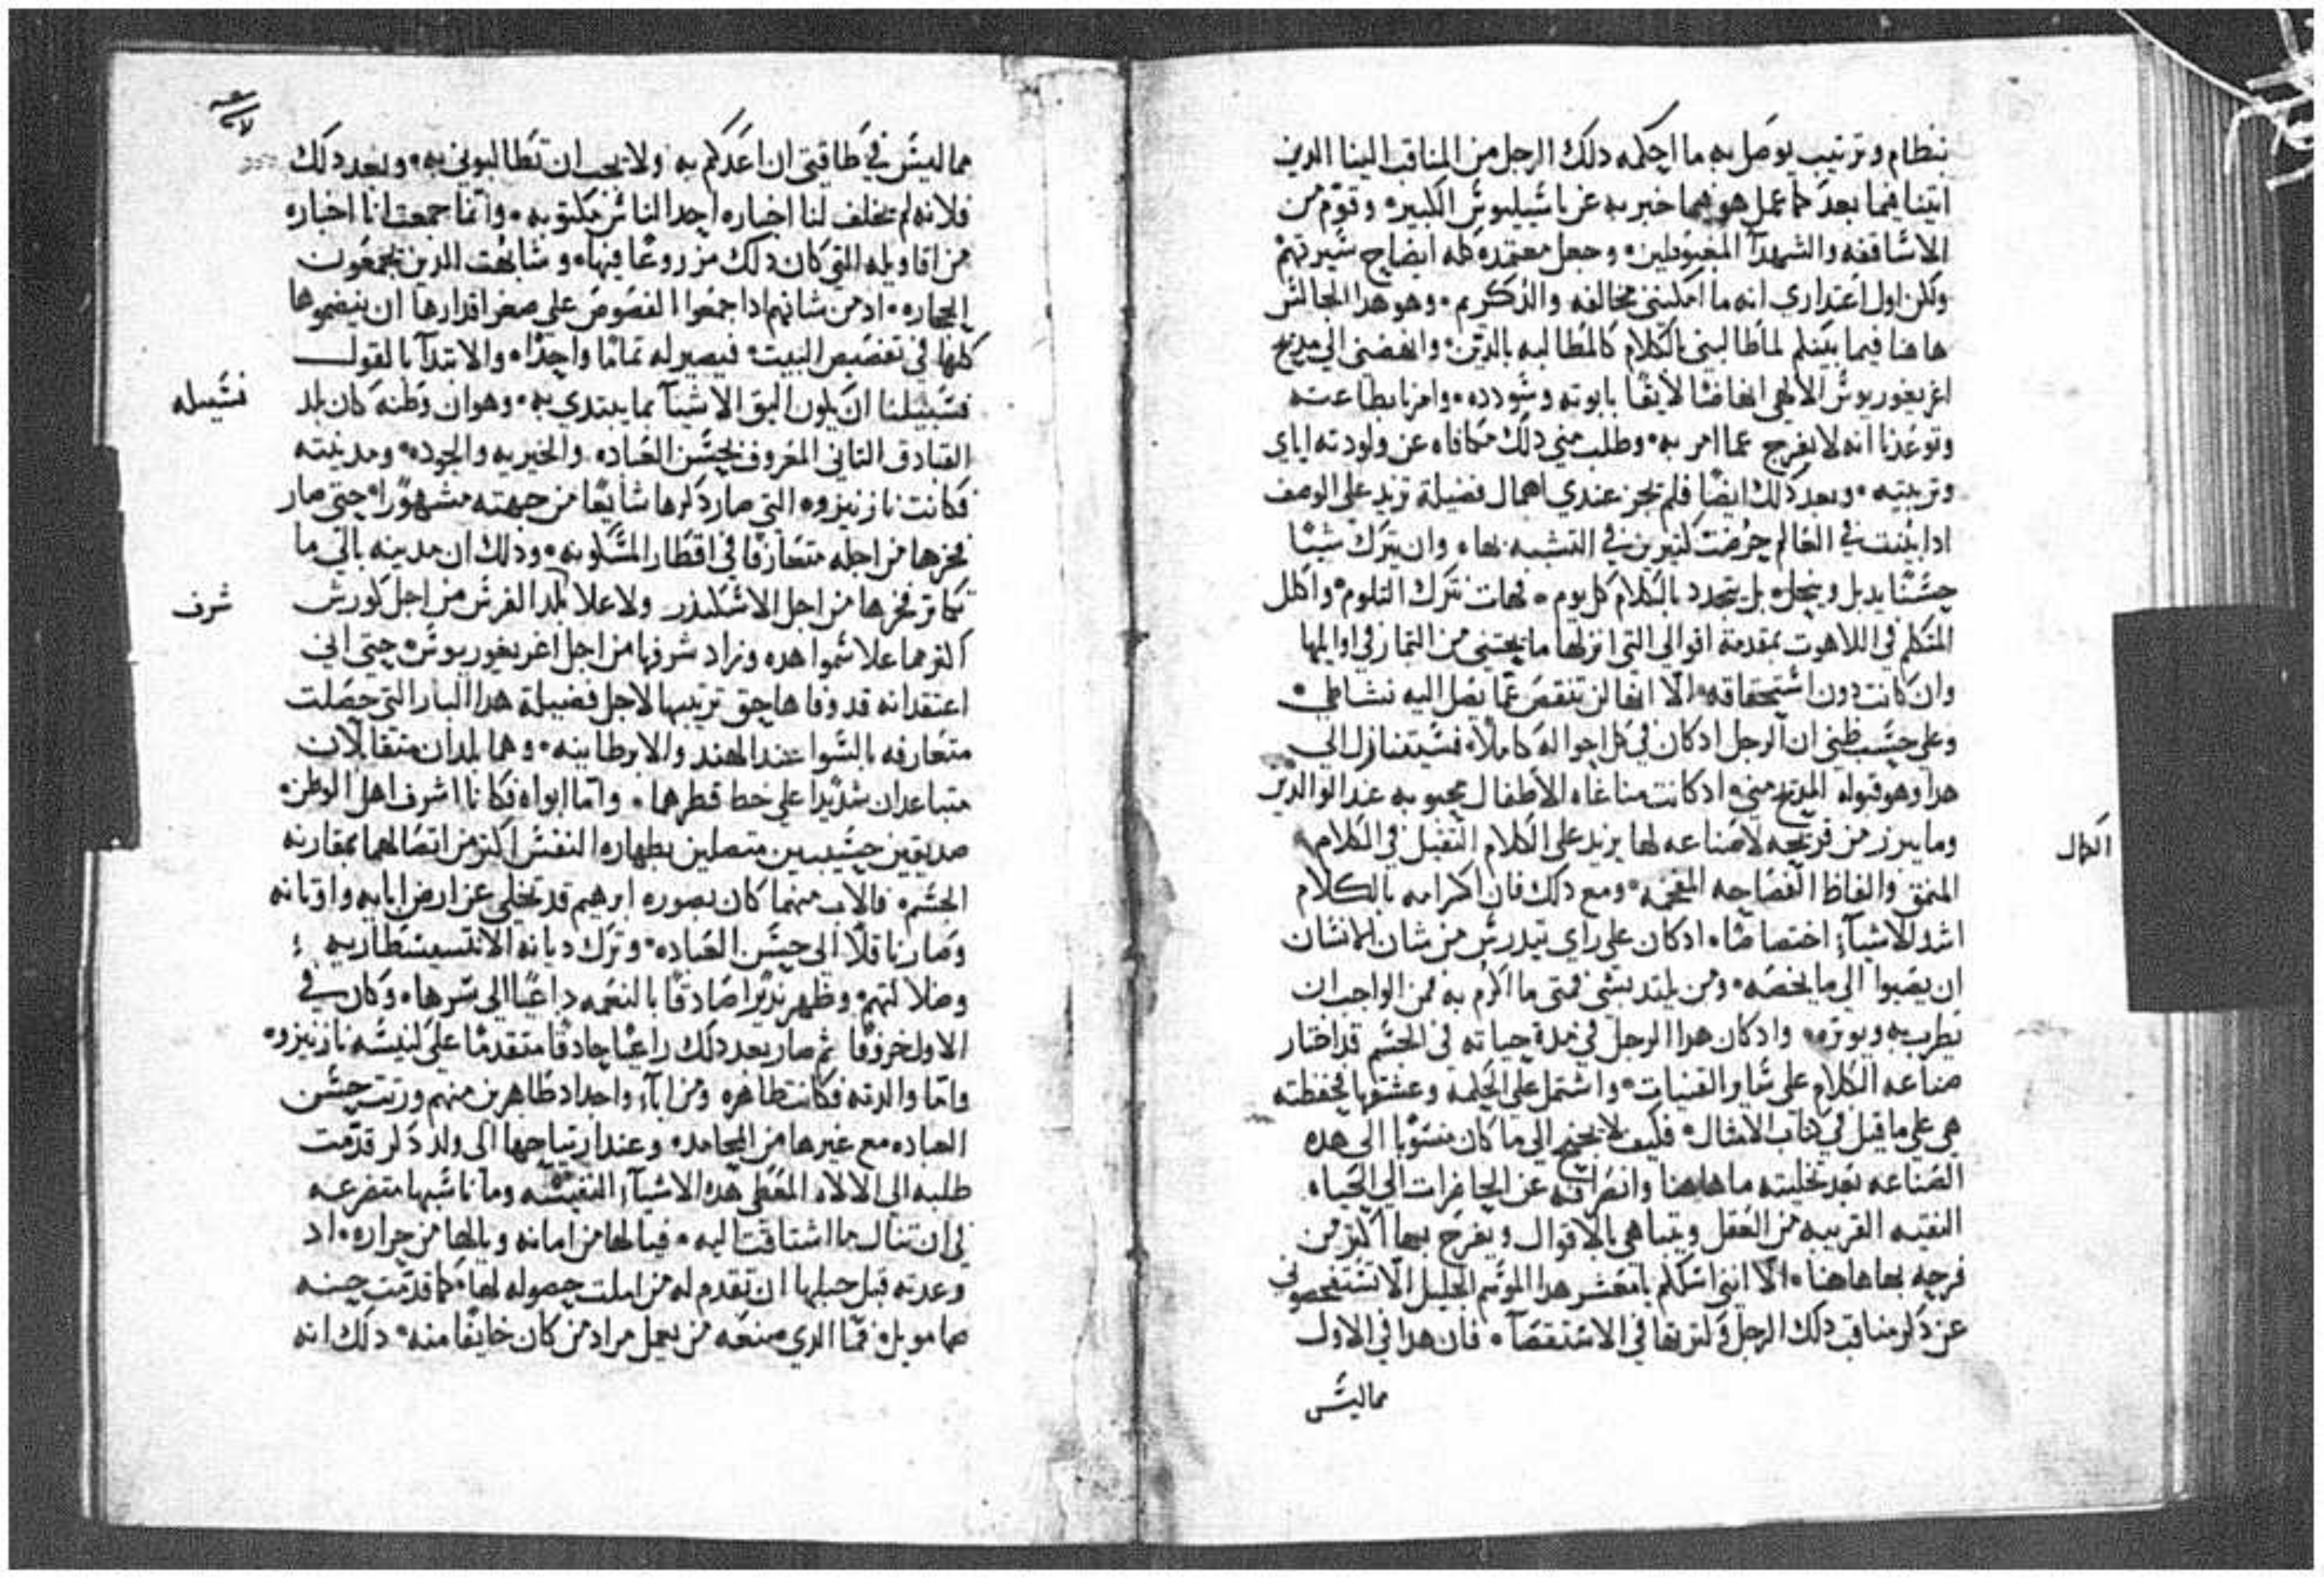 بنظام وترتيب يوصل به ما احكمه دلك الرجل من المناقب الينا الدين
اتينا فيما بعد كما عمل هو فيما خبر به عن باسيليوس الكبير وقوم من
الاساقفه والشهدآ المغبوطين وجعل معتمده كله ايضاح سيرتهم
ولكن اول اعتداري انه ما امكنني مخالفه والدكريم وهو هدا الجالس
هاهنا فيما يتسلم لما طالبني بالكلام كالمطالبه بالدين وانهضني الي مديح
اغريغوريوس الالهي انهاضًا لايقًا بابوته وسودده وامرنا بطاعته
وتوعدنا انه لا يفرج عما امر به وطلب مني دلك مكافاه عن ولودته اياي
وتربيته وبعد دلك ايضًا فلم يجز عندي اهمال فضيلة تزيد علي الوصف
ادا بثت في العالم حرضت كثيرين في التشبه بها وان يترك شيئا
حسنًا يدبل وينحل بل يتجدد بالكلام كل يوم فهات نترك التلوم واكلل
المتكلم في اللاهوت بمقدمة اقوالي التي انزلها ما يجتني من الثمار في اوايلها
وان كانت دون استحقاقه الا انها لن تنقص عما يصل اليه نشاطي
وعلي حسب ظني ان الرجل اد كان في كل احواله كاملاً فسيتنازل الي
هدا وهو قبوله المديح مني اد كانت مناغاه الاطفال محبوبه عند الوالدين
وما يبرز من قريحه لا صناعه لها يزيد علي الكلام الثقيل في الكلام
المنمق والفاظ الفصاحه المفخمه ومع دلك فان اكرامه بالكلام
اشد الاشيآء اختصاصًا اد كان علي راي تيدرس من شان الانسان
ان يصبوا الي ما يخصه ومن يلتد بشي فمتي ما اكرم به فمن الواجب ان
يطرب به ويوثره واد كان هدا الرجل في مدة حياته في الجسم قد اختار
صناعه الكلام علي ساير القنيات واشتمل علي الحكمه وعشقها فحفظته
هي علي ما قيل في كتاب الامثال فكيف لا يجنح الي ما كان منسوبا الي هده
الصناعه بعد تخليته ما هاهنا وانصرافه عن الحاضرات الي الحياه
النقيه القريبه من العقل ويتباهي بالاقوال ويفرح بها اكثر من
فرحه بها هاهنا الا انني اسلكم يا معشر هدا الموسم الجليل الا تستفحصوني
عن دكر مناقب دلك الرجل وكثرتها في الاستقصآ فان هدا في الاول
مماليس
الكمال
مماليس في طاقتي ان اعدكم به ولا يجب ان تطالبوني به وبعد دلك
فلانه لم يخلف لنا اخباره احد الناس مكتوبه وانما جمعت انا اخباره
من اقاويله التي كان دلك مزروعًا فيها وشابهت الدين يجمعون
الحجاره اد من شانهم ادا جمعوا الفصوص علي صغر اقدارها ان ينضموها
كلها في تفصيص البيت فيصير له تمامًا واحدًا والابتدآ بالقول
فسبيلنا ان يكون اليق الاشيآ بما يبتدي به وهو ان وطنه كان بلد
القبادق الثاني المعروف بحسن العباده والخيريه والجوده ومدينته
فكانت نازينزوه التي صار دكرها شايعًا من جهته مشهورًا حتي صار
فخرها من اجله متعارفًا في اقطار المسكونه ودلك ان مدينه بالي ما
تكاثر فخرها من اجل الاسكندر ولا علا بلد الفرس من اجل كورش
اكثر مما علا سموا هده وزاد شرفها من اجل اغريغوريوس حتي اني
اعتقد انه قد وفاها حق تربيتها لاجل فضيلة هدا البار التي حصلت
متعارفه بالسوا عند الهند والابرطانيه وهما بلدان متقابلان
متباعدان شديدًا علي خط قطرهما واما ابواه فكانا اشرف اهل الوطن
صديقين حسيبين متصلين بطهاره النفس اكثر من اتصالهما بمقارنه
الجسم فالاب منهما كان بصوره ابرهيم قد تخلي عن ارض ابايه واوثانه
وصار ناقلاً الي حسن العباده وترك ديانه
وضلالتهم وظهر نديرًا صادقًا بالنعمه داعيًا الي سرها وكان في
الاول خروفًا ثم صار بعد دلك راعيًا حادقًا متقدمًا علي كنيسه نازينزوه
واما والدته فكانت طاهره ومن آباء واجداد طاهرين منهم ورثت حسن
العباده مع غيرها من المحامد وعند ارتياحها الي ولد دكر قدمت
طلبه الي الالاه المعطي هده الاشيآء النفيسه وما ناسبها متضرعه
في ان تنال ما اشتاقت اليه فيا لها من امانه ويا لها من حراره اد
وعدته قبل حبلها ان تقدم له من املت حصوله لها كما قدمت حنه
صامويل فما الدي منعه من يعمل مراد من كان خايفًا منه دلك انه
فسبيله
شرف